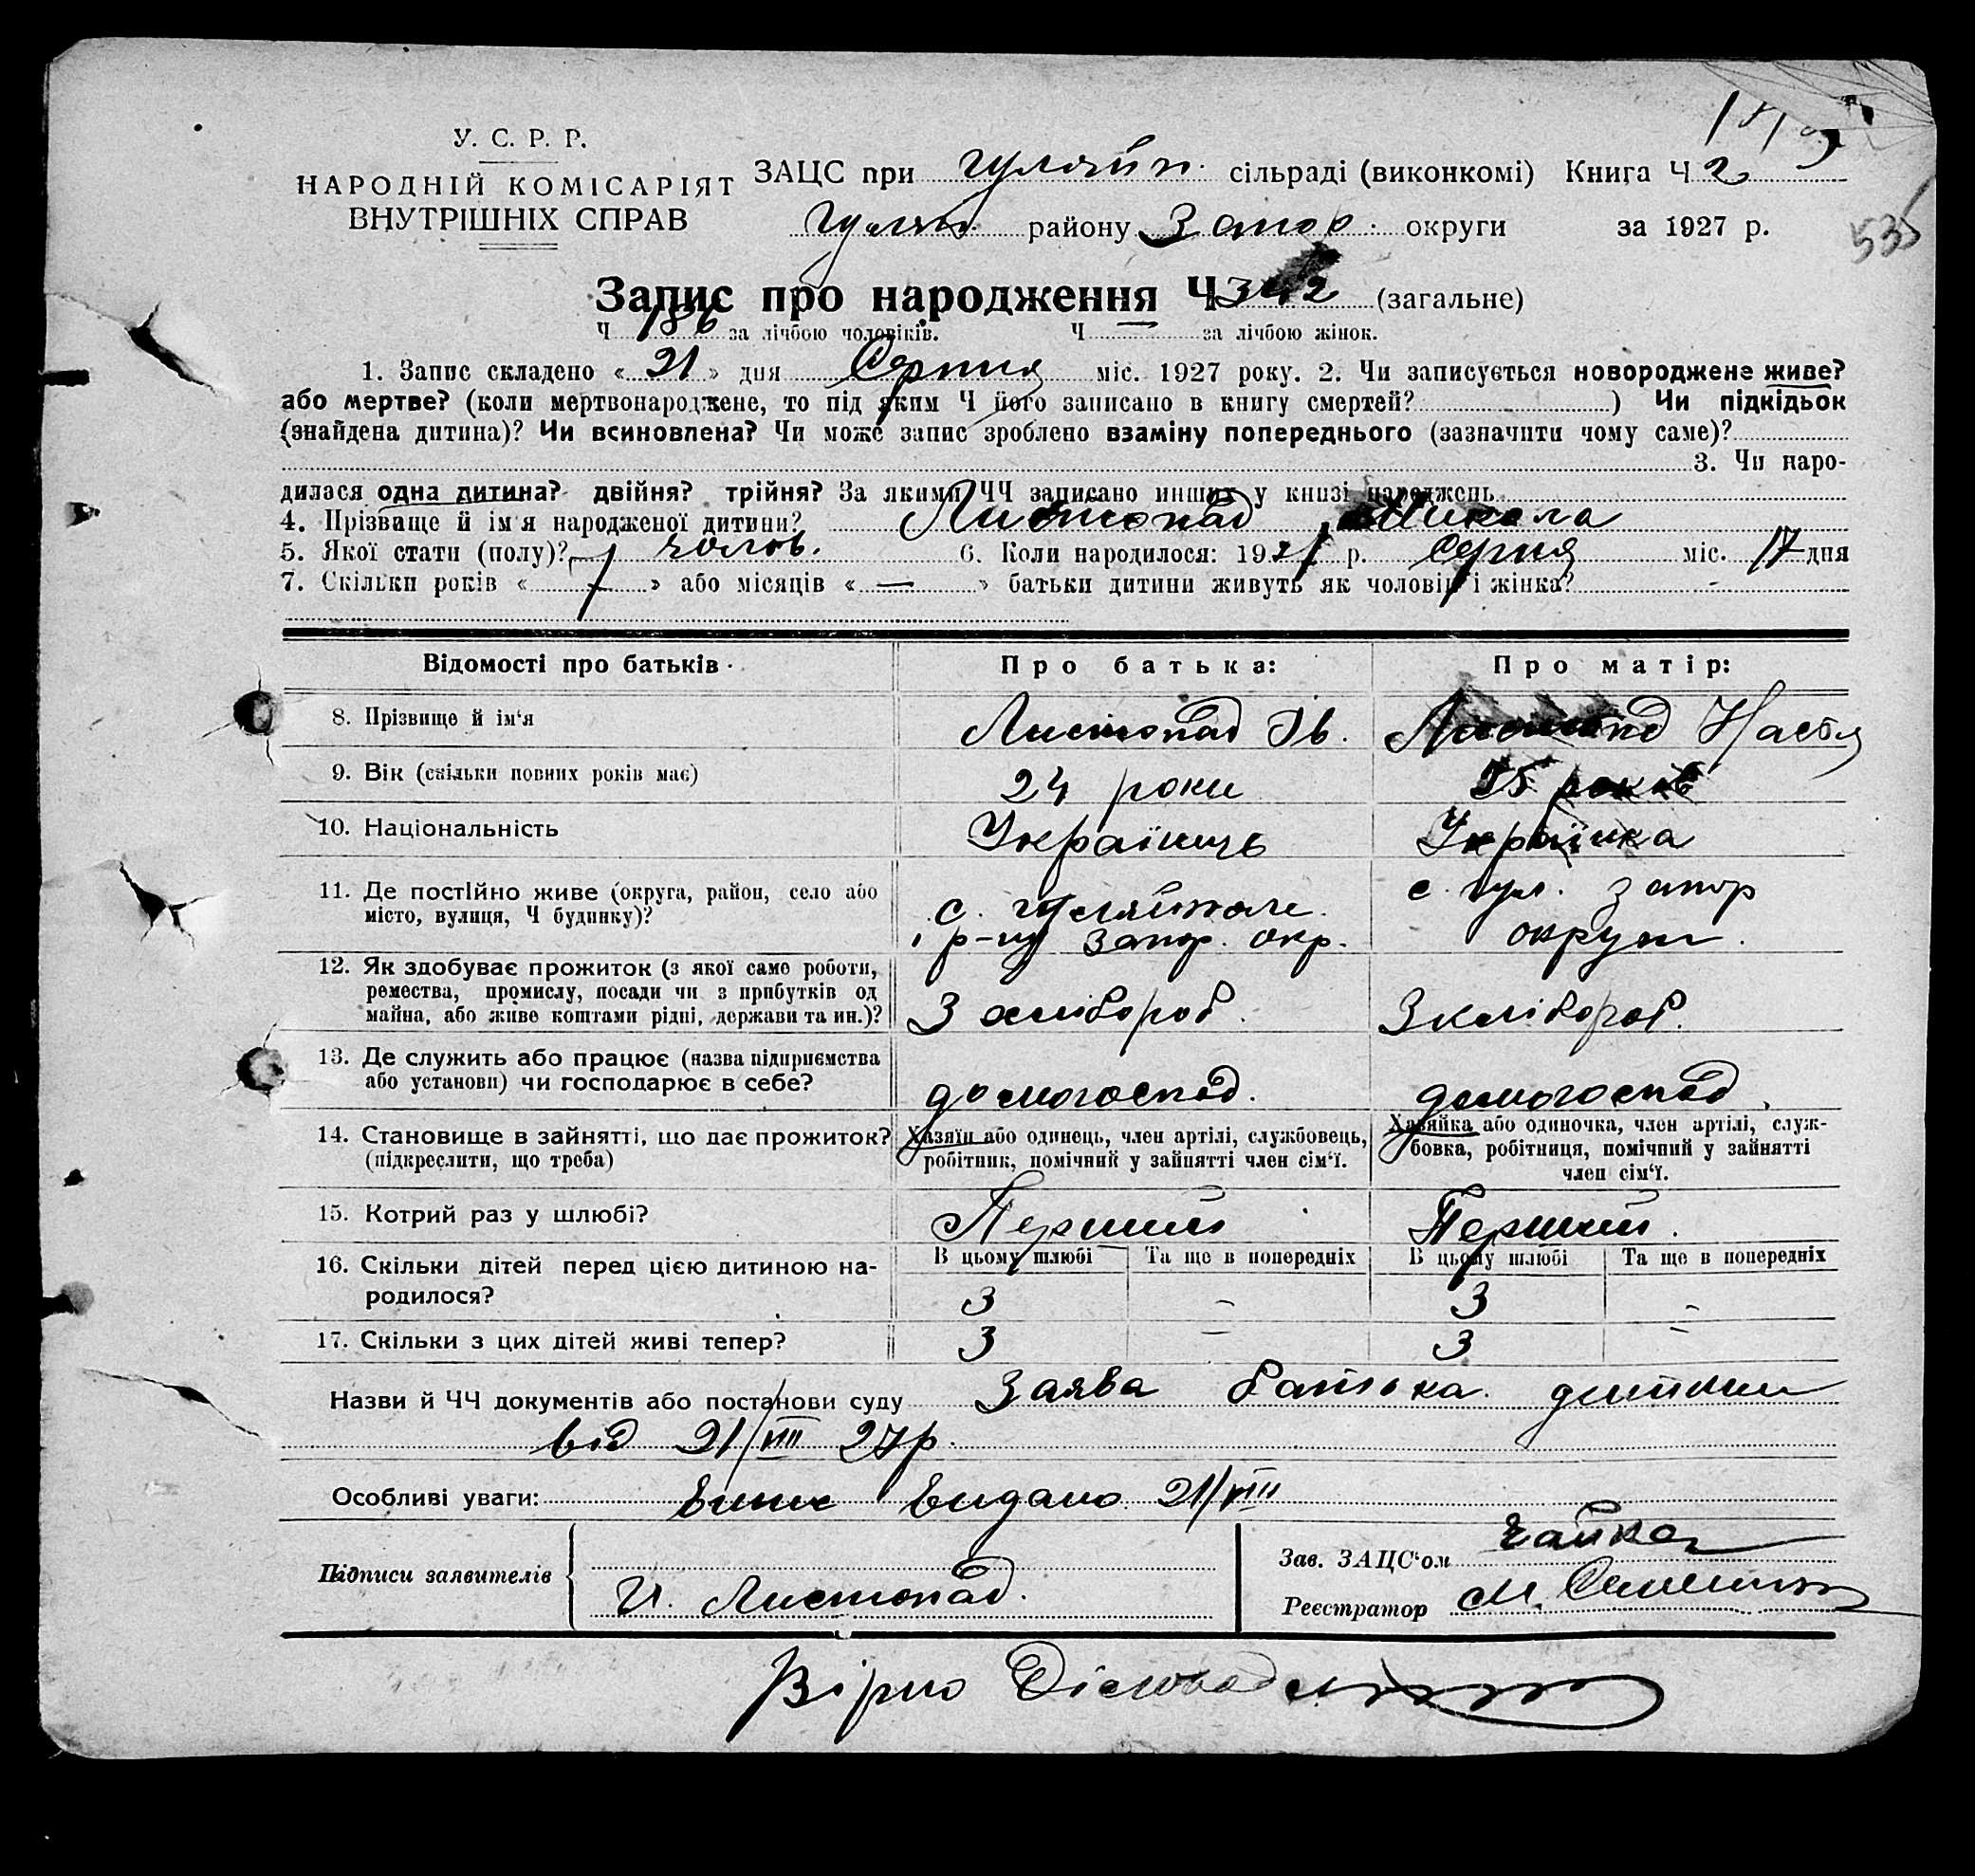 У. С. Р. Р.
НАРОДНІЙ КОМІСАРІЯТ
ВНУТРІШНІХ СПРАВ
ЗАЦС при гуляйп. сільраді (виконкомі) Книга Ч 2
гуляй. району Запор. округи за 1927 р.
535
Запис про народження Ч 342 (загальне)
Ч 186 за лічбою чоловіків. Ч — за лічбою жінок.
1. Запис складено «21» дня Серпня міс. 1927 року. 2. Чи записується новороджене живе?
або мертве? (коли мертвонароджене, то під яким Ч його записано в книгу смертей? ) Чи підкідьок
(знайдена дитина)? Чи всиновлена? Чи може запис зроблено взаміну попереднього (зазначити чому саме)?
3. Чи наро-
дилася одна дитина? двійня? трійня? За якими ЧЧ записано инших у книзі народжень
4. Прізвище й ім'я народженої дитини? Листопад Микола
5. Якої стати (полу)? чолов. 6. Коли народилося: 1927 р. серпня міс. 17 дня
7. Скільки років « 7 » або місяців « — » батьки дитини живуть як чоловік і жінка? -
Відомості про батьків Про батька: Про матір:
8. Прізвище й ім'я Листопад Ів. Листопад Настя
9. Вік (скільки повних років має) 24 роки 25 років
10. Національність Українець Українка
11. Де постійно живе (округа, район, село або
місто, вулиця, Ч будинку)?
с. гуляйполе
р-ну Запор. окр.
с. гул. запор
округи.
12. Як здобуває прожиток (з якої саме роботи,
ремества, промислу, посади чи з прибутків од
майна, або живе коштами рідні, держави та ин.)?
З хлібороб. З хлібороб.
13. Де служить або працює (назва підприємства
або установи) чи господарює в себе?
домогоспод. домогоспод.
14. Становище в зайнятті, що дає прожиток?
(підкреслити, що треба)
Хазяїн або одинець, член артілі, службовець,
робітник, помічний у зайнятті член сім'ї.
Хазяйка або одиночка, член артілі, служ-
бовка, робітниця, помічний у зайнятті
член сім'ї.
15. Котрий раз у шлюбі? Перший Перший.
16. Скільки дітей перед цією дитиною на-
родилося?
В цьому шлюбі Та ще в попередніх В цьому шлюбі Та ще в попередніх
3 - 3 -
17. Скільки з цих дітей живі тепер? 3 - 3 -
Назви й ЧЧ документів або постанови суду Заява батька дитини
від 21/VIII 27р.
Особливі уваги: Випис видано 21/VIII
Підписи заявителів И. Листопад.
Зав. ЗАЦС'ом Чайка
Реєстратор М.
Вірно